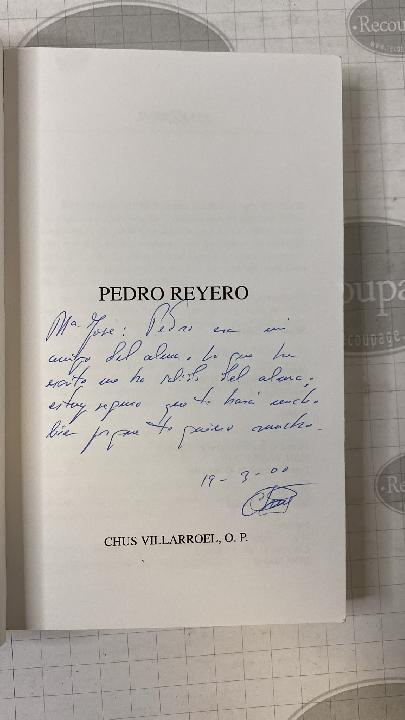 PEDRO REYERO
Mª José: Pedro era mi
amigo del alma. Lo que he
escrito me ha salido del alma;
estoy seguro que te hará mucho
bien porque te quiero mucho.
19-3-00
Chus
CHUS VILLARROEL, O. P.
Recou
oupa
ecoupage
Re